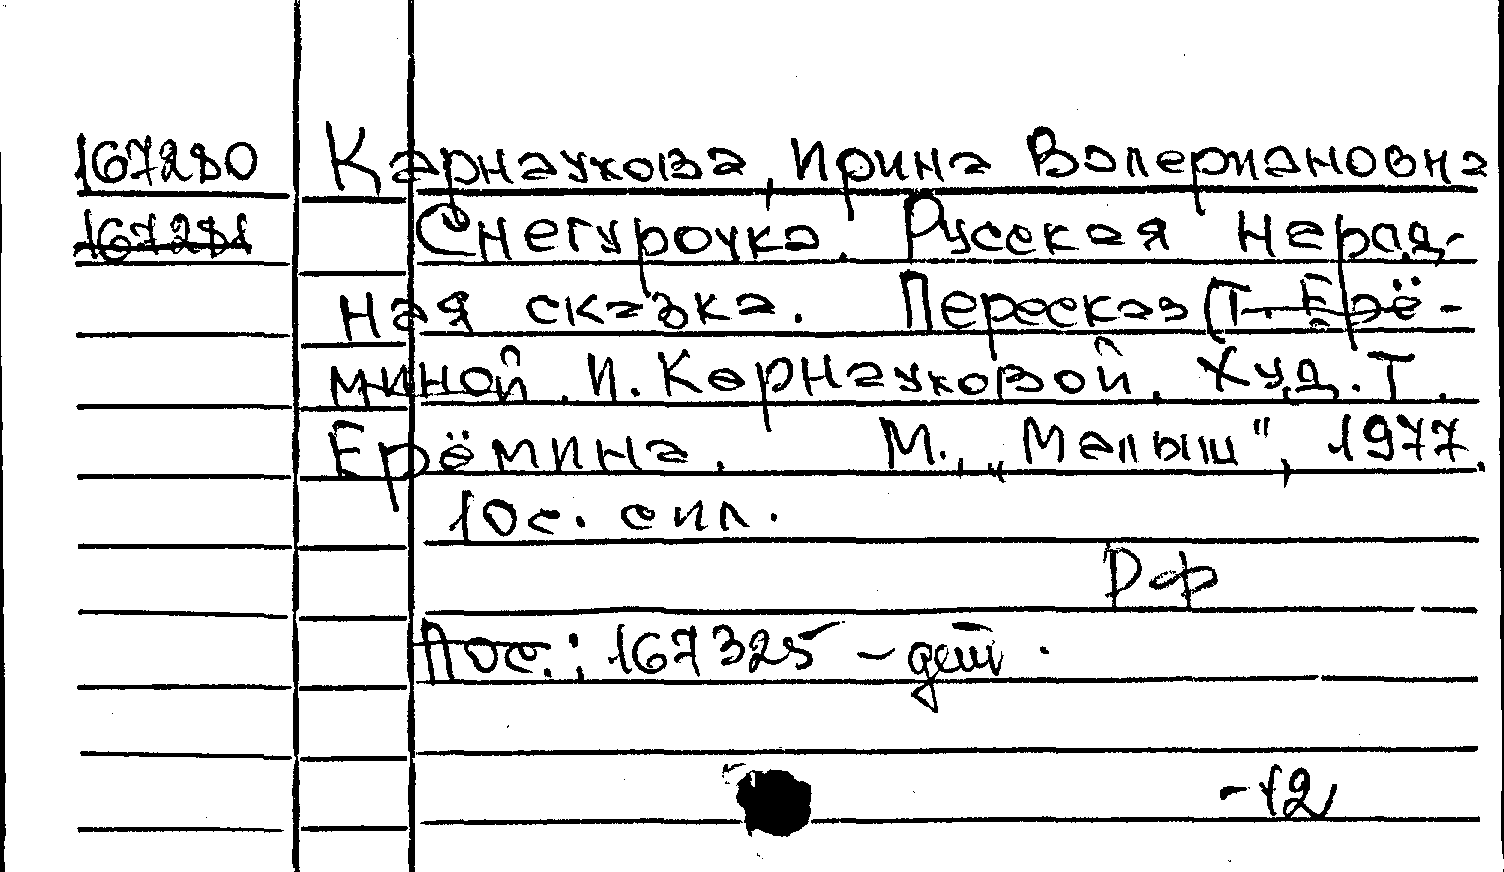 167280 Карнаухова, Ирина Валериановна
167281 Снегурочка. Русская нерад-
ная сказка. Пересказ (Т. Ерё-
миной. И. Карнауховой. Худ. Т.
Ерёмина. М., „Малыш", 1977.
10с. с ил.
РФ
Пос.: 167325 - дет.
-12